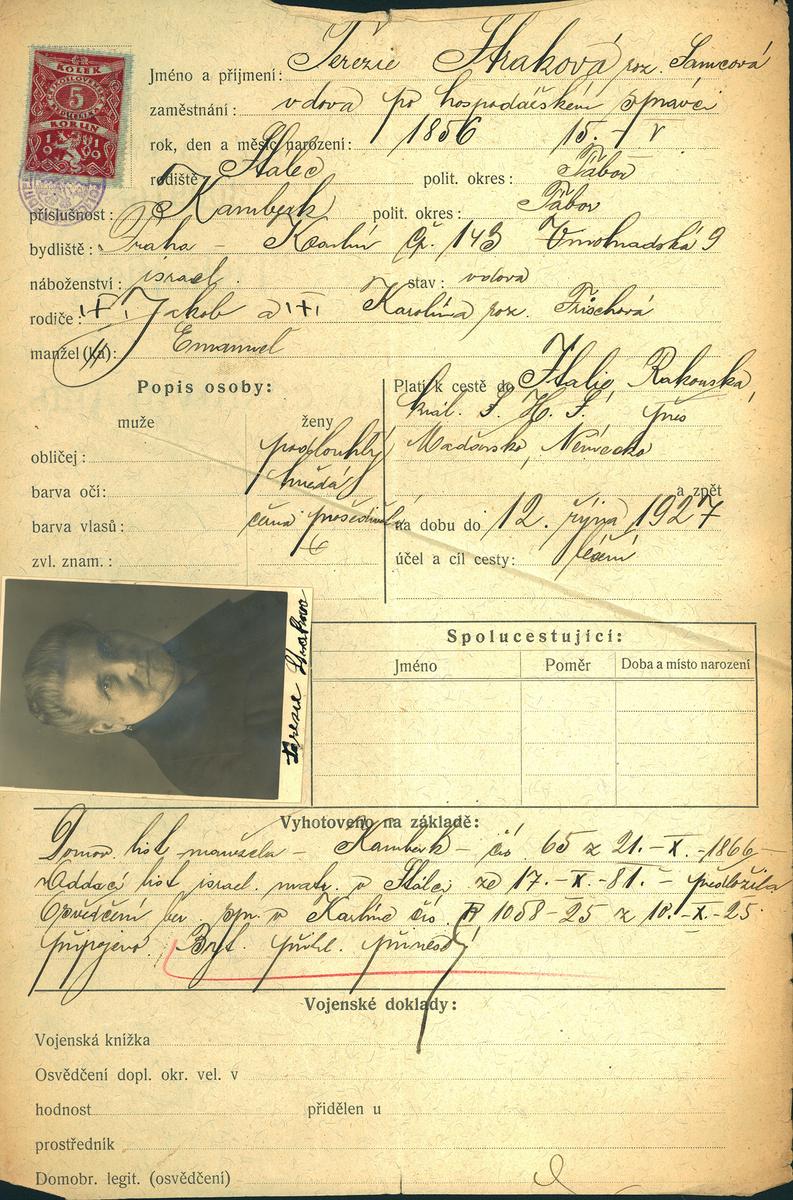 KOLEK
5
KORUN
1919
Jméno a příjmení: Terezie Straková roz. Samcová
zaměstnání: vdova po hospodářském správci
rok, den a měsíc narození: 1856 15. - V
rodiště Stálec polit. okres: Tábor
příslušnost: Kamberk polit. okres: Tábor
bydliště: Praha - Karlín čp. 143 9
náboženství: israel. stav: vdova
rodiče: Jakob a Karolina roz. Frischová
manžel (ka): Emanuel
Popis osoby:
muže ženy
obličej: podlouhlý
barva očí: hnědá
barva vlasů: černá prošedivělá
zvl. znam.:
Platí k cestě do Italie, Rakouska,
král. S. H. S. přes
Maďarsko, Německo
a zpět
na dobu do 12. října 1927
účel a cíl cesty: léčení
Terezie Straková
Spolucestující:
Jméno Poměr Doba a místo narození
Vyhotoveno na základě:
Domov. list manžela - Kamberk - čís. 65 z 21. - X. - 1866 -
Oddací list israel. matr. v Stálci ze 17. - X. - 81. - předložila
Osvědčení ber. spr. v Karlíně čís. 1058 - 25 z 10. - X. - 25.
připojeno. přihl.
Vojenské doklady:
Vojenská knížka
Osvědčení dopl. okr. vel. v
hodnost přidělen u
prostředník
Domobr. legit. (osvědčení)